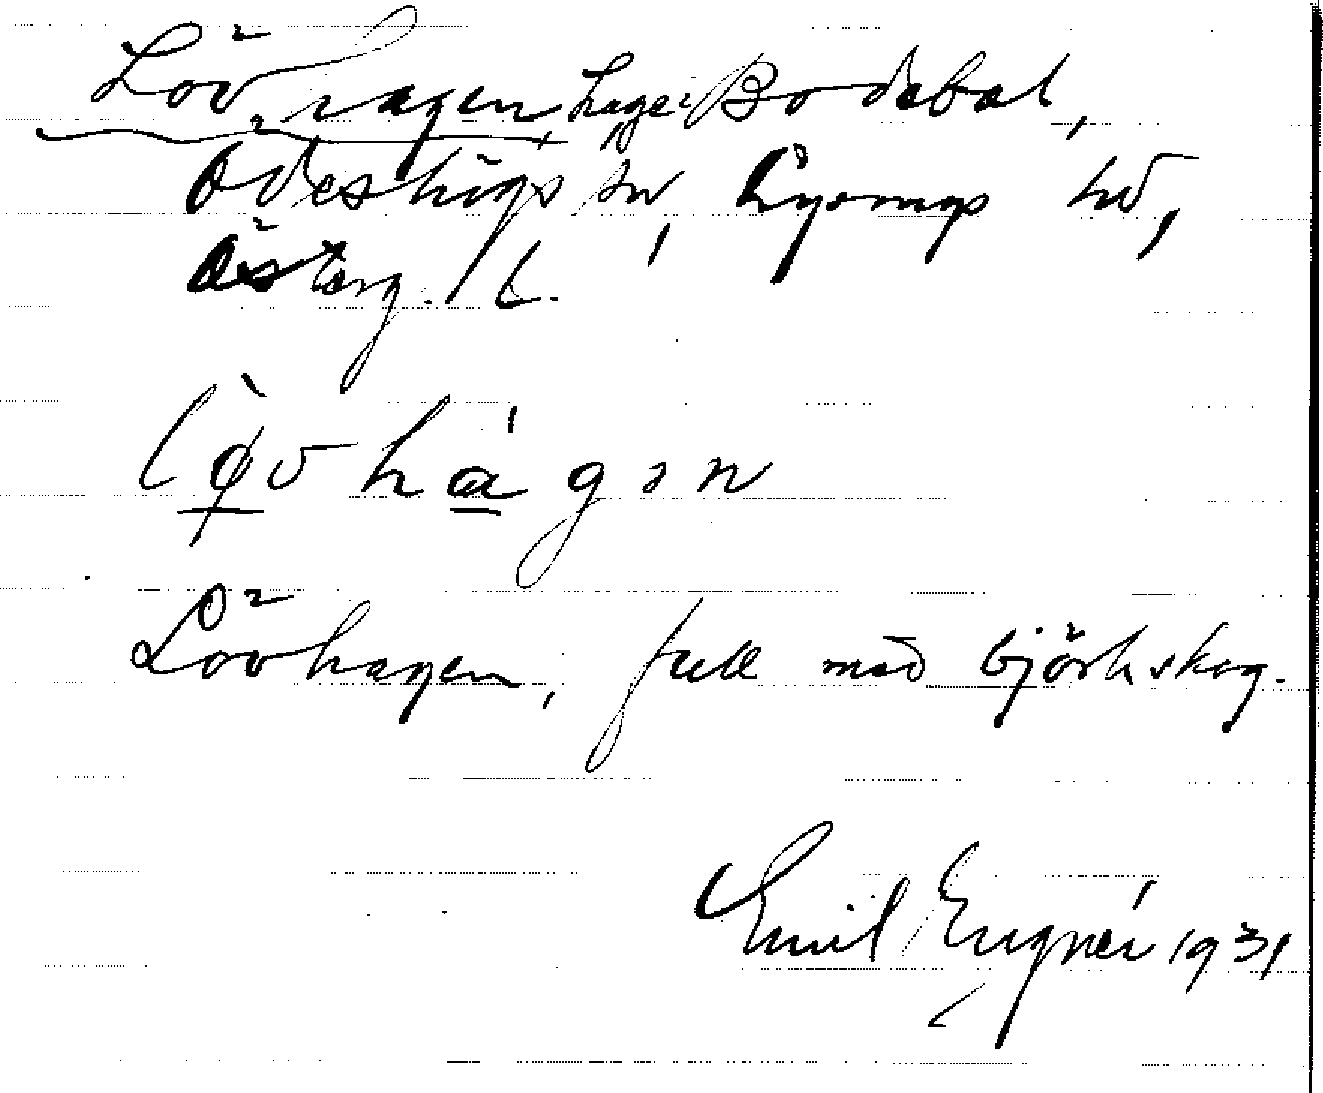 Lövhagen, hage: Bodabal,
Ödeshögs sn, Lysings hd,
Österg. l.
lø̀vhágən
Lövhagen, full med björkskog.
Emil 1931